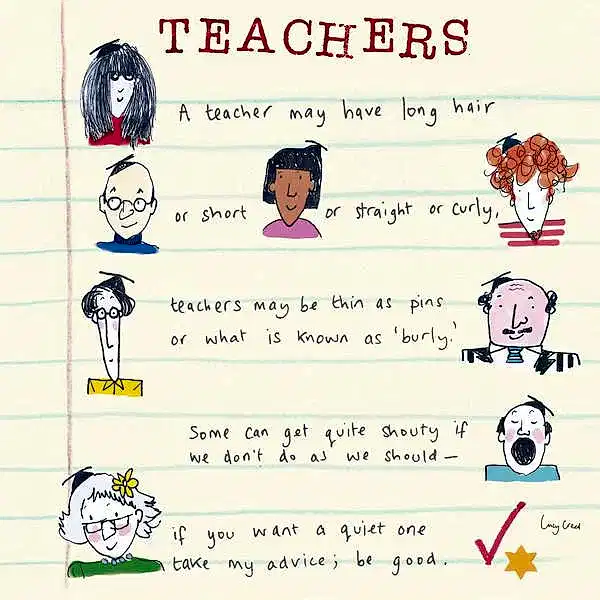 TEACHERS
A teacher may have long hair
or short or straight or curly,
teachers may be thin as pins
or what is known as 'burly.'
Some can get quite shouty if
we don't do as we should—
if you want a quiet one
take my advice; be good.